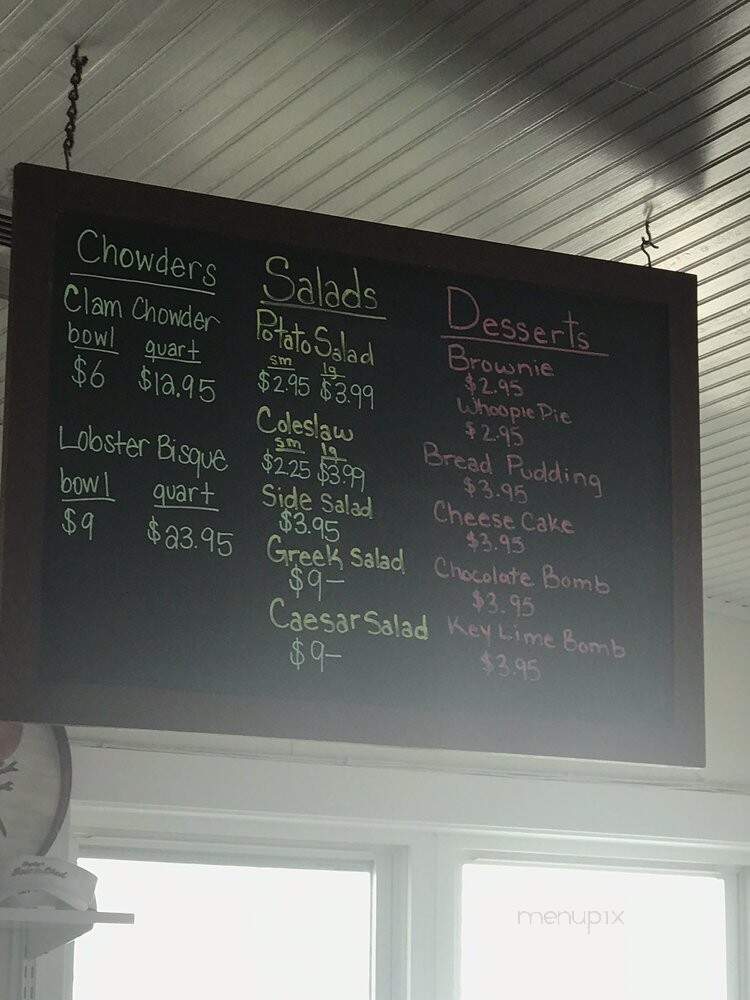 Chowders
Clam Chowder
bowl quart
$6 $12.95
Lobster Bisque
bowl quart
$9 $23.95
Salads
Potato Salad
sm lg
$2.95 $3.99
Coleslaw
sm lg
$2.25 $3.99
Side Salad
$3.95
Greek Salad
$9-
Caesar Salad
$9-
Desserts
Brownie
$2.95
Whoopie Pie
$2.95
Bread Pudding
$3.95
Cheese Cake
$3.95
Chocolate Bomb
$3.95
Key Lime Bomb
$3.95
menupix